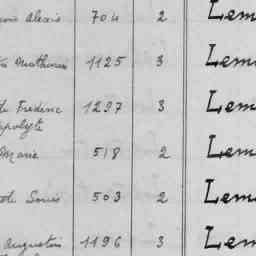 Alexis 704 2 Lem
Mathurin 1125 3 Lem
Frederic 1297 3 Lem
Hippolyte
Marie 518 2 Lem
Louis 503 2 Lem
Augustin 1196 3 Lem